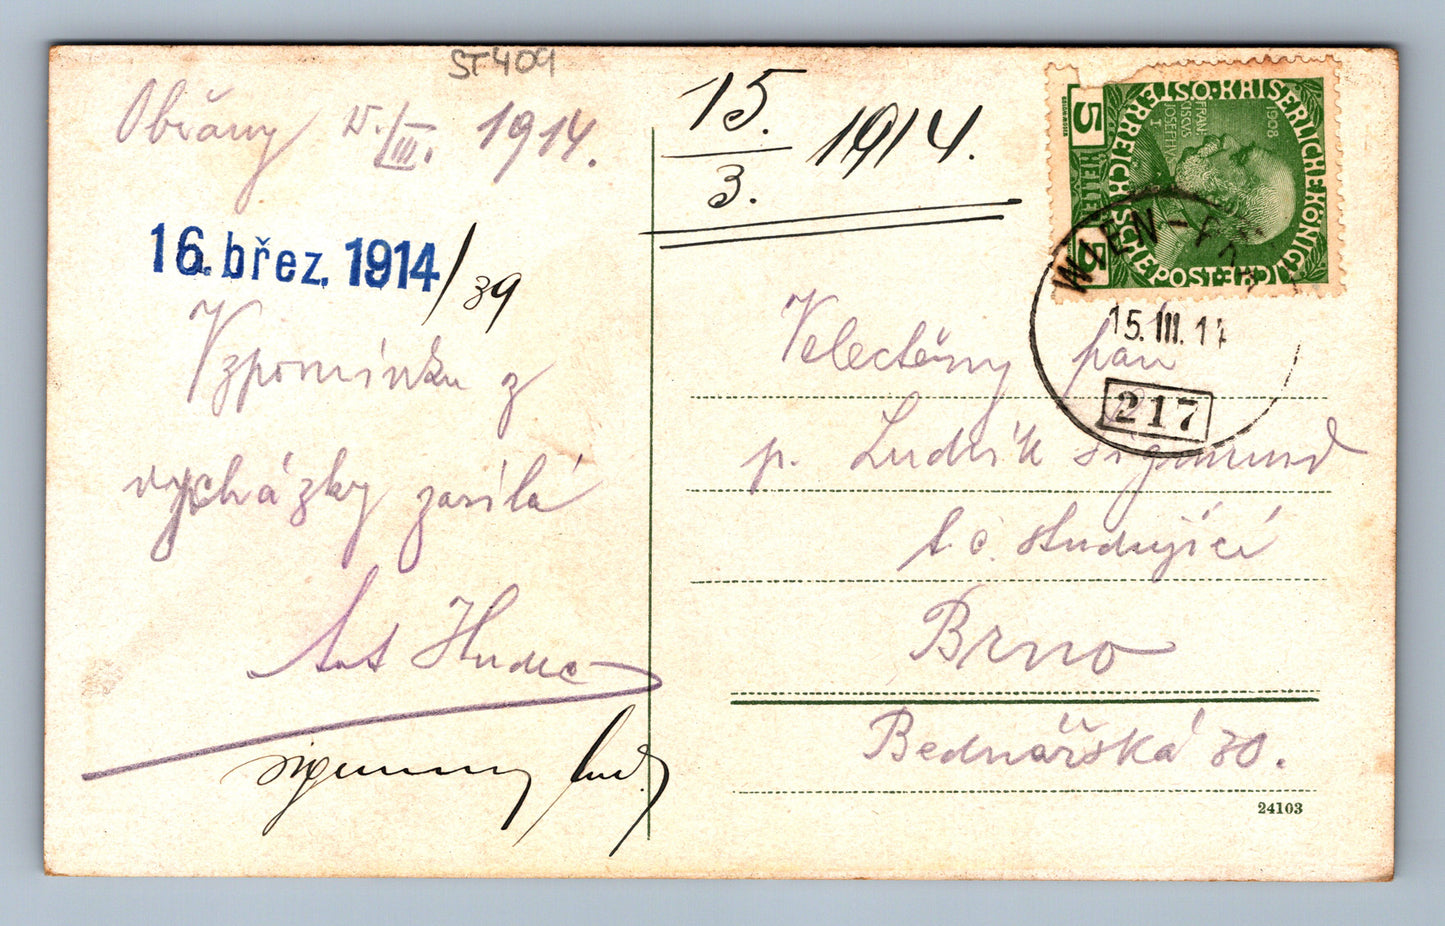 ST409
Obřany 15./III. 1914.
16. břez. 1914 / 39
Vzpomínku z
vycházky zasílá
Ant Hudec
15.
3. 1914.
ÖSTERREICHISCHE POST
KAISERLICHE KÖNIGLICHE
FRANCISCUS JOSEPHUS I
1908
5 HELLER 5
WIEN-
15.III.14
217
Velectěný pan
p. Ludvík Sigmund
t. č. studující
Brno
Bednářská 30.
24103